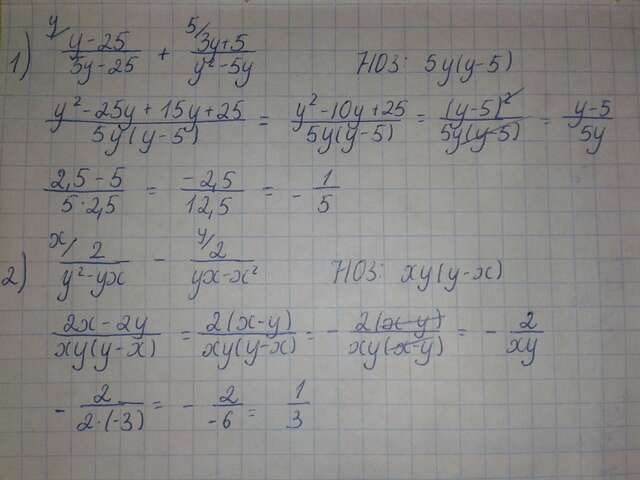 1) y/ (y-25)/(5y-25) + 5/ (3y+5)/(y²-5y) НОЗ: 5y(y-5)
(y²-25y+15y+25)/(5y(y-5)) = (y²-10y+25)/(5y(y-5)) = (y-5)²/(5y(y-5)) = (y-5)/(5y)
(2,5-5)/(5·2,5) = (-2,5)/(12,5) = -1/5
2) x/ 2/(y²-yx) - y/ 2/(yx-x²) НОЗ: xy(y-x)
(2x-2y)/(xy(y-x)) = 2(x-y)/(xy(y-x)) = - 2(x-y)/(xy(x-y)) = - 2/(xy)
- 2/(2·(-3)) = - 2/(-6) = 1/3